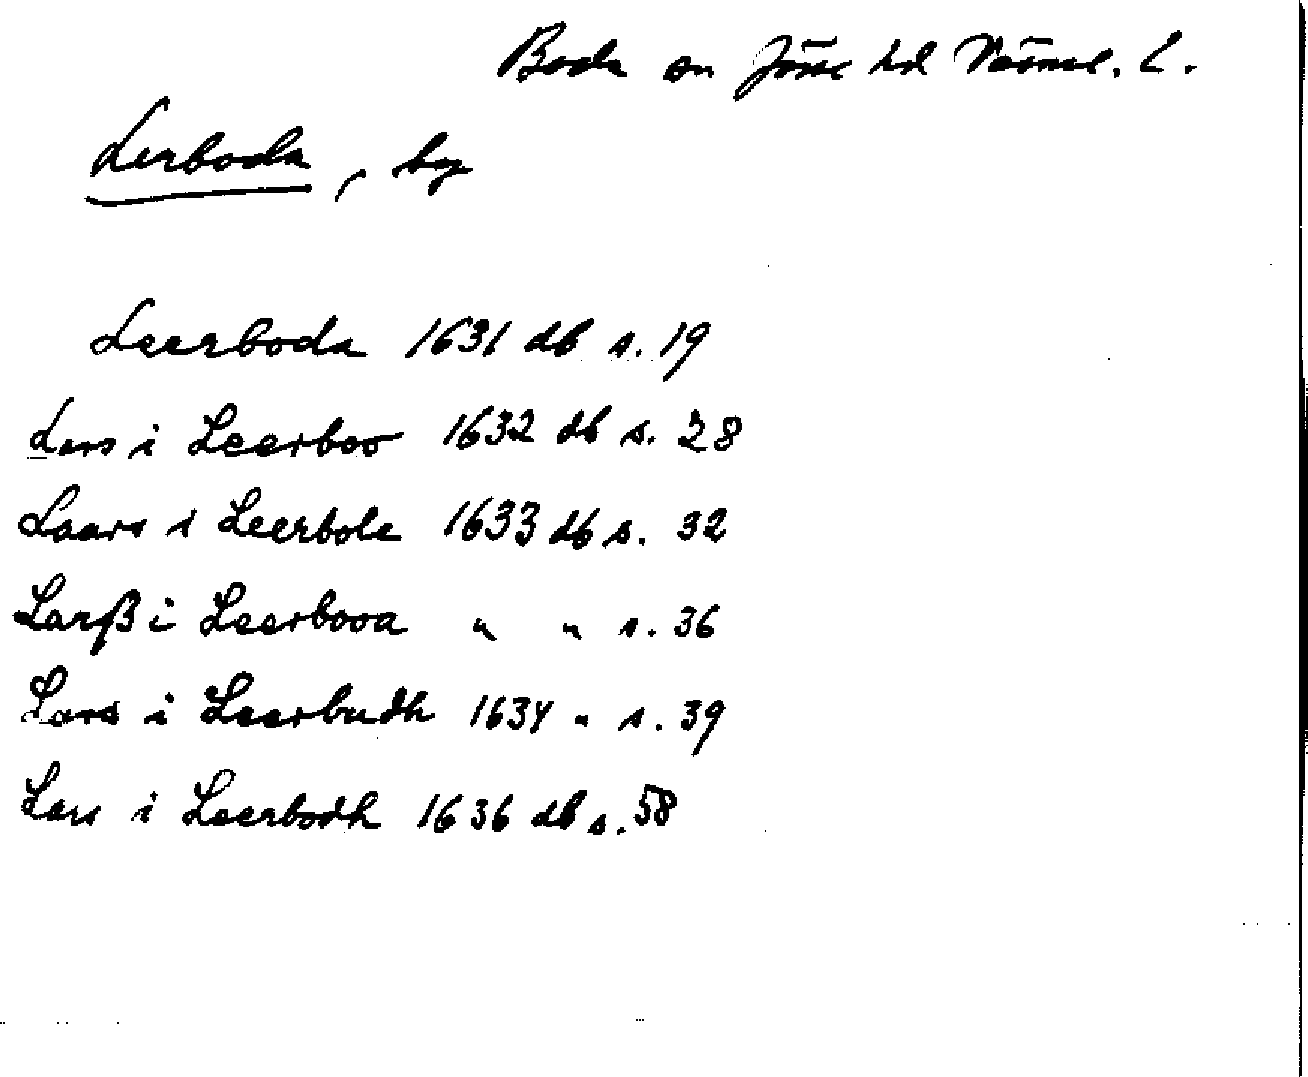 Boda sn Jösse hd Värml. L.
Lerboda, by
Leerboda 1631 db s. 19
Lars i Leerboo 1632 db s. 28
Laars i Leerbole 1633 db s. 32
Larß i Leerbooa " " s. 36
Lars i Leerbudh 1634 " s. 39
Lars i Leerbodh 1636 db s. 58